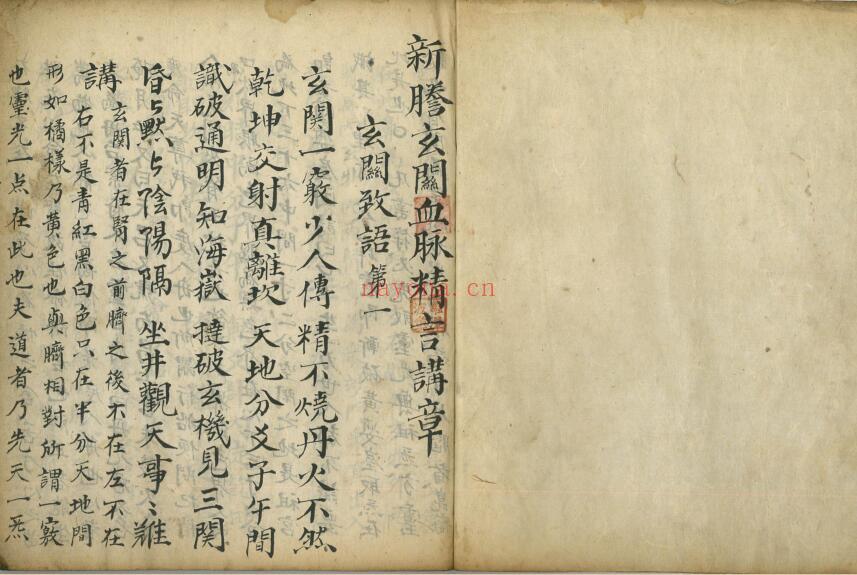 新謄玄關血脉精言講章
玄關致語 第一
玄関一竅少人傳 精不燒丹火不然
乾坤交射真離坎 天地分爻子午間
識破通明知海嶽 撻破玄機見三関
昏㇌默㇌陰陽隔 坐井觀天事〻難
講 玄関者在腎之前臍之後不在左不在
右不是青紅黑白色只在半分天地間
形如橘樣乃黃色也與臍相對所謂一竅
也靈光一点在此也夫道者乃先天一炁